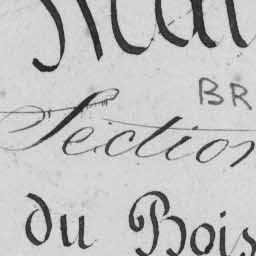 Mai
BR
Section
du Bois